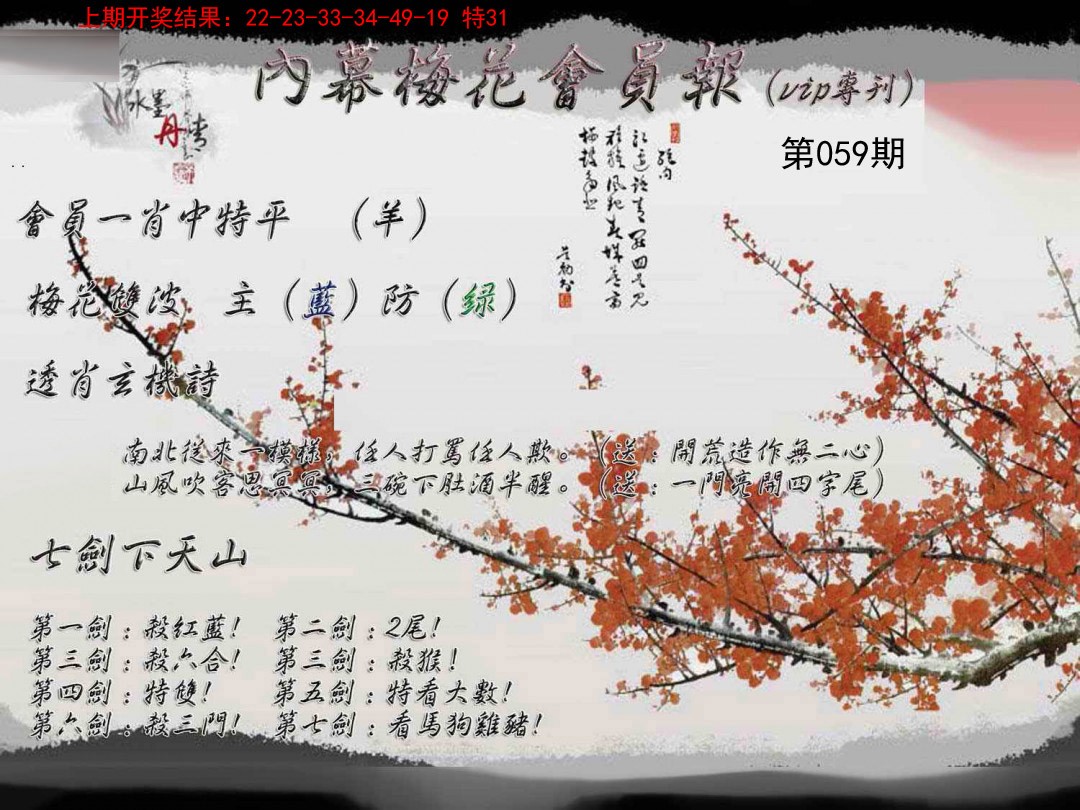 上期开奖结果：22-23-33-34-49-19 特31
內幕梅花會員報（vip專刊）
水墨
丹青
第059期
會員一肖中特平　（羊）
梅花雙波　主（藍）防（绿）
透肖玄機詩
南北從來一模樣，任人打罵任人欺。（送：開荒造作無二心）
山風吹客思冥冥，三碗下肚酒半醒。（送：一門亮開四字尾）
七劍下天山
第一劍：殺紅藍！　第二劍：2尾！
第三劍：殺六合！　第三劍：殺猴！
第四劍：特雙！　第五劍：特看大數！
第六劍：殺三門！　第七劍：看馬狗雞豬！